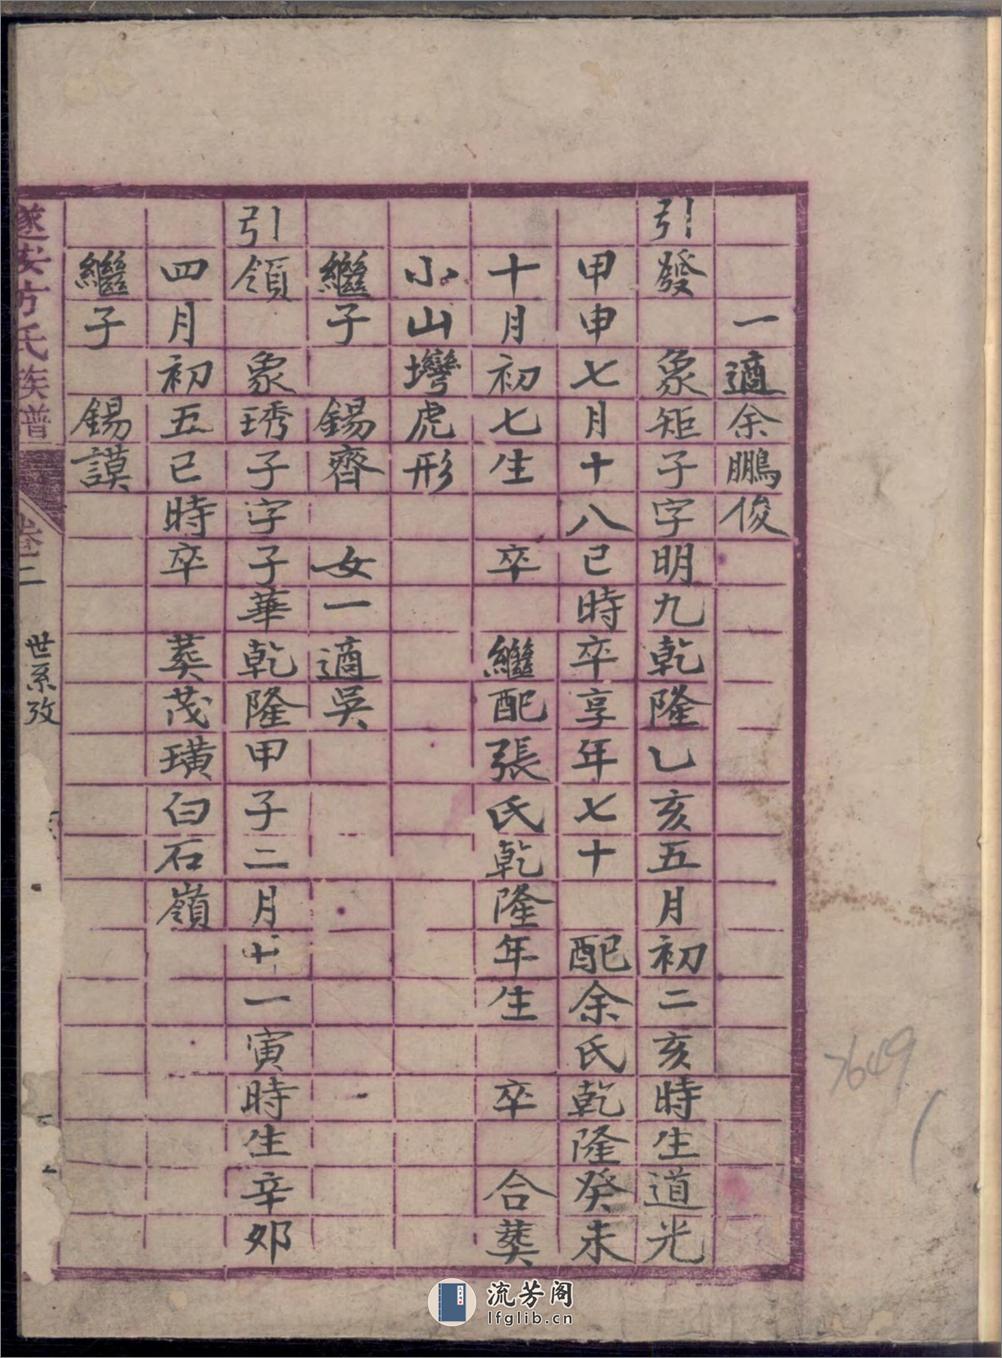 一適余鵬俊
引發 象矩子字明九乾隆乙亥五月初二亥時生道光
甲申七月十八巳時卒享年七十 配余氏乾隆癸未
十月初七生 卒 繼配張氏乾隆年生 卒 合葬
小山灣虎形
繼子 錫齊 女一 適吳
引領 象琇子字子華乾隆甲子二月十一寅時生辛卯
四月初五巳時卒 葬茂璜白石嶺
繼子 錫謨
遂安方氏族譜 卷二 世系攷
7649
流芳阁
lfglib.cn